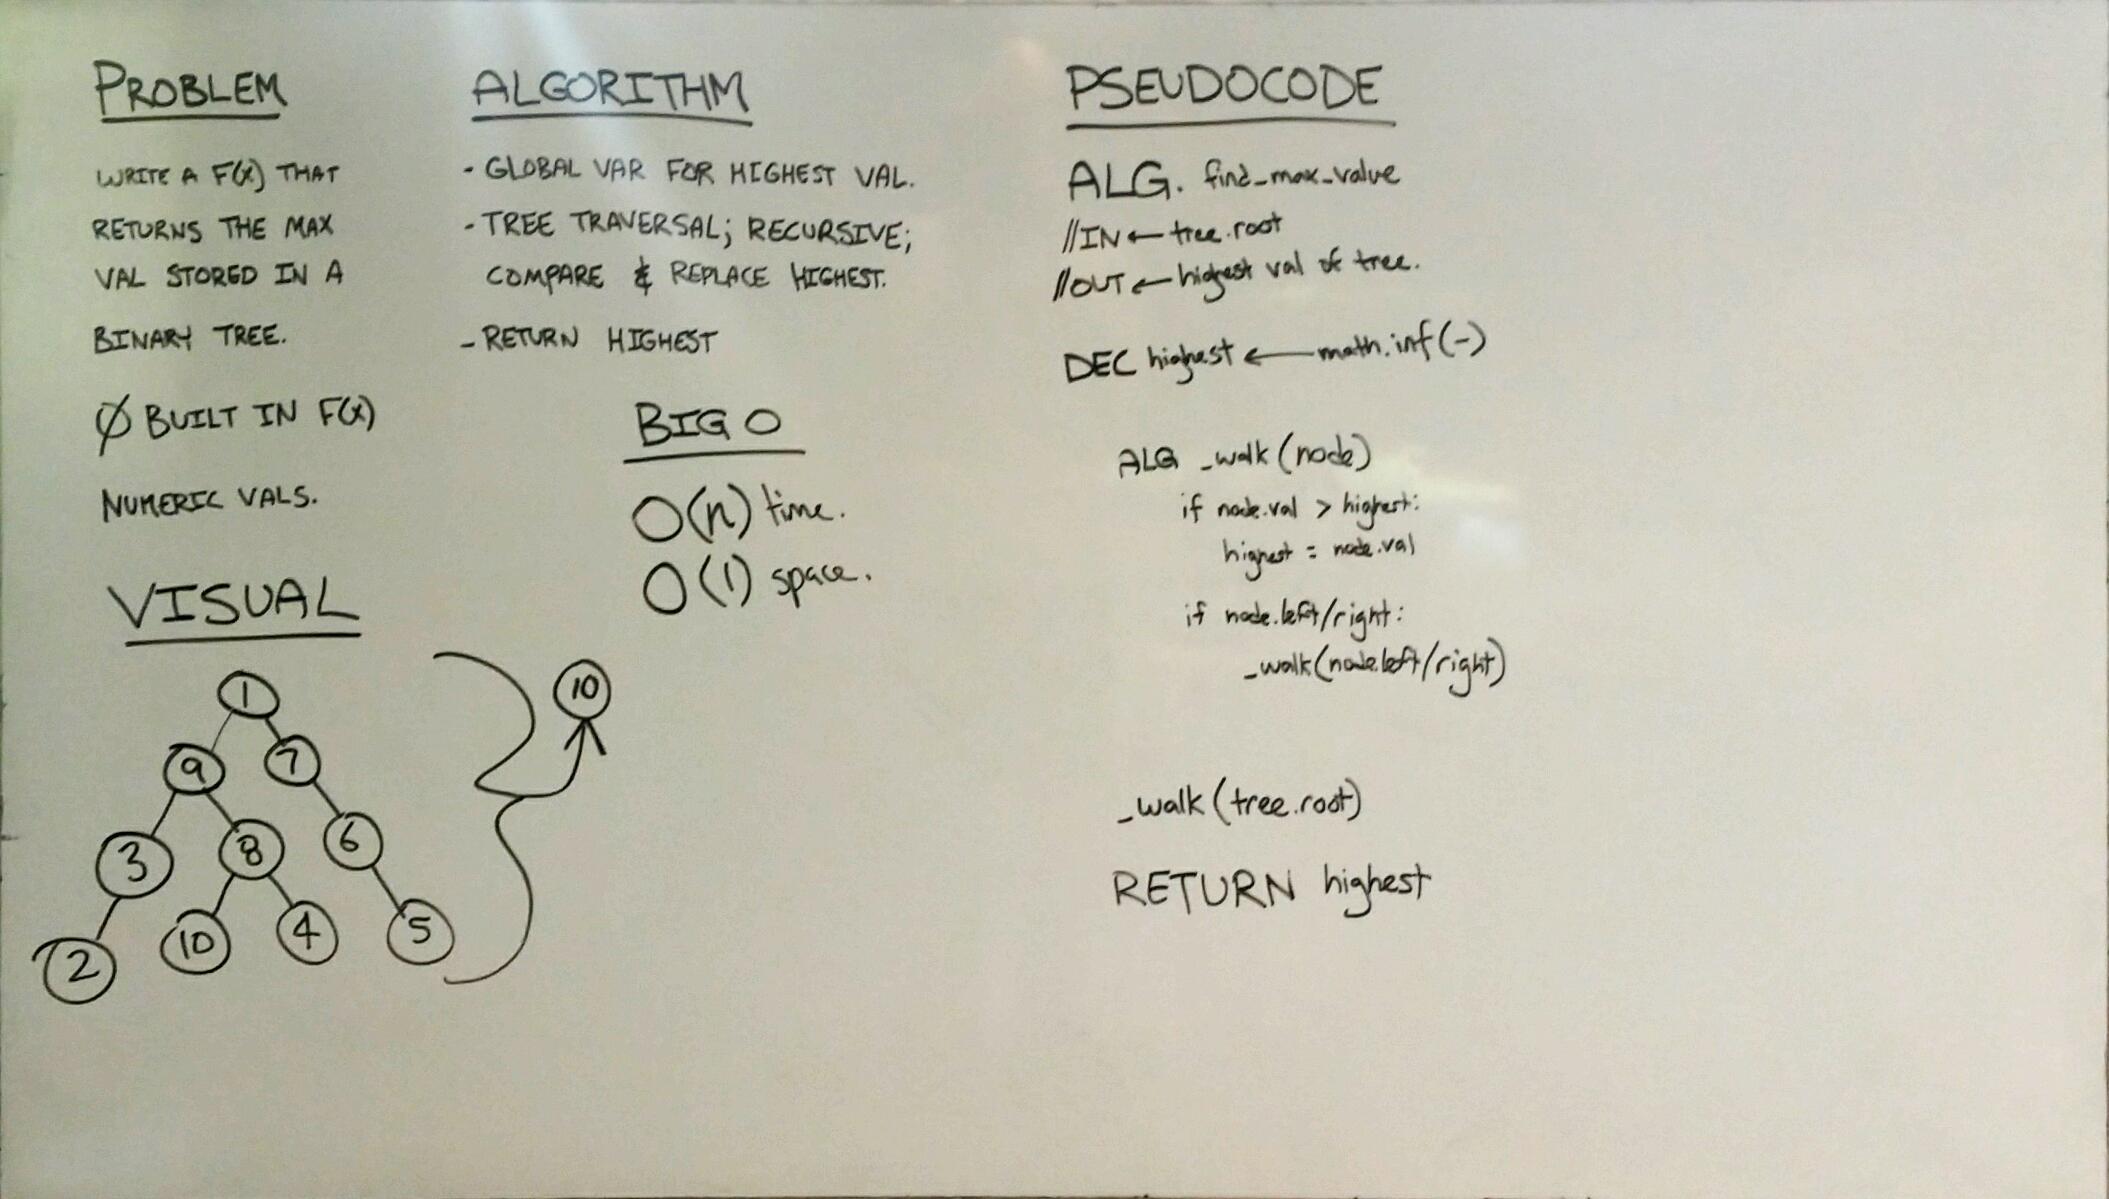 PROBLEM
WRITE A F(X) THAT
RETURNS THE MAX
VAL STORED IN A
BINARY TREE.
∅ BUILT IN F(X)
NUMERIC VALS.
VISUAL
1
9 7
3 8 6
2 10 4 5
10
ALGORITHM
- GLOBAL VAR FOR HIGHEST VAL.
- TREE TRAVERSAL; RECURSIVE;
COMPARE & REPLACE HIGHEST.
- RETURN HIGHEST
BIG O
O(n) time.
O(1) space.
PSEUDOCODE
ALG. find_max_value
//IN ← tree.root
//OUT ← highest val of tree.
DEC highest ← math.inf(-)
ALG _walk(node)
if node.val > highest:
highest = node.val
if node.left/right:
_walk(node.left/right)
_walk(tree.root)
RETURN highest